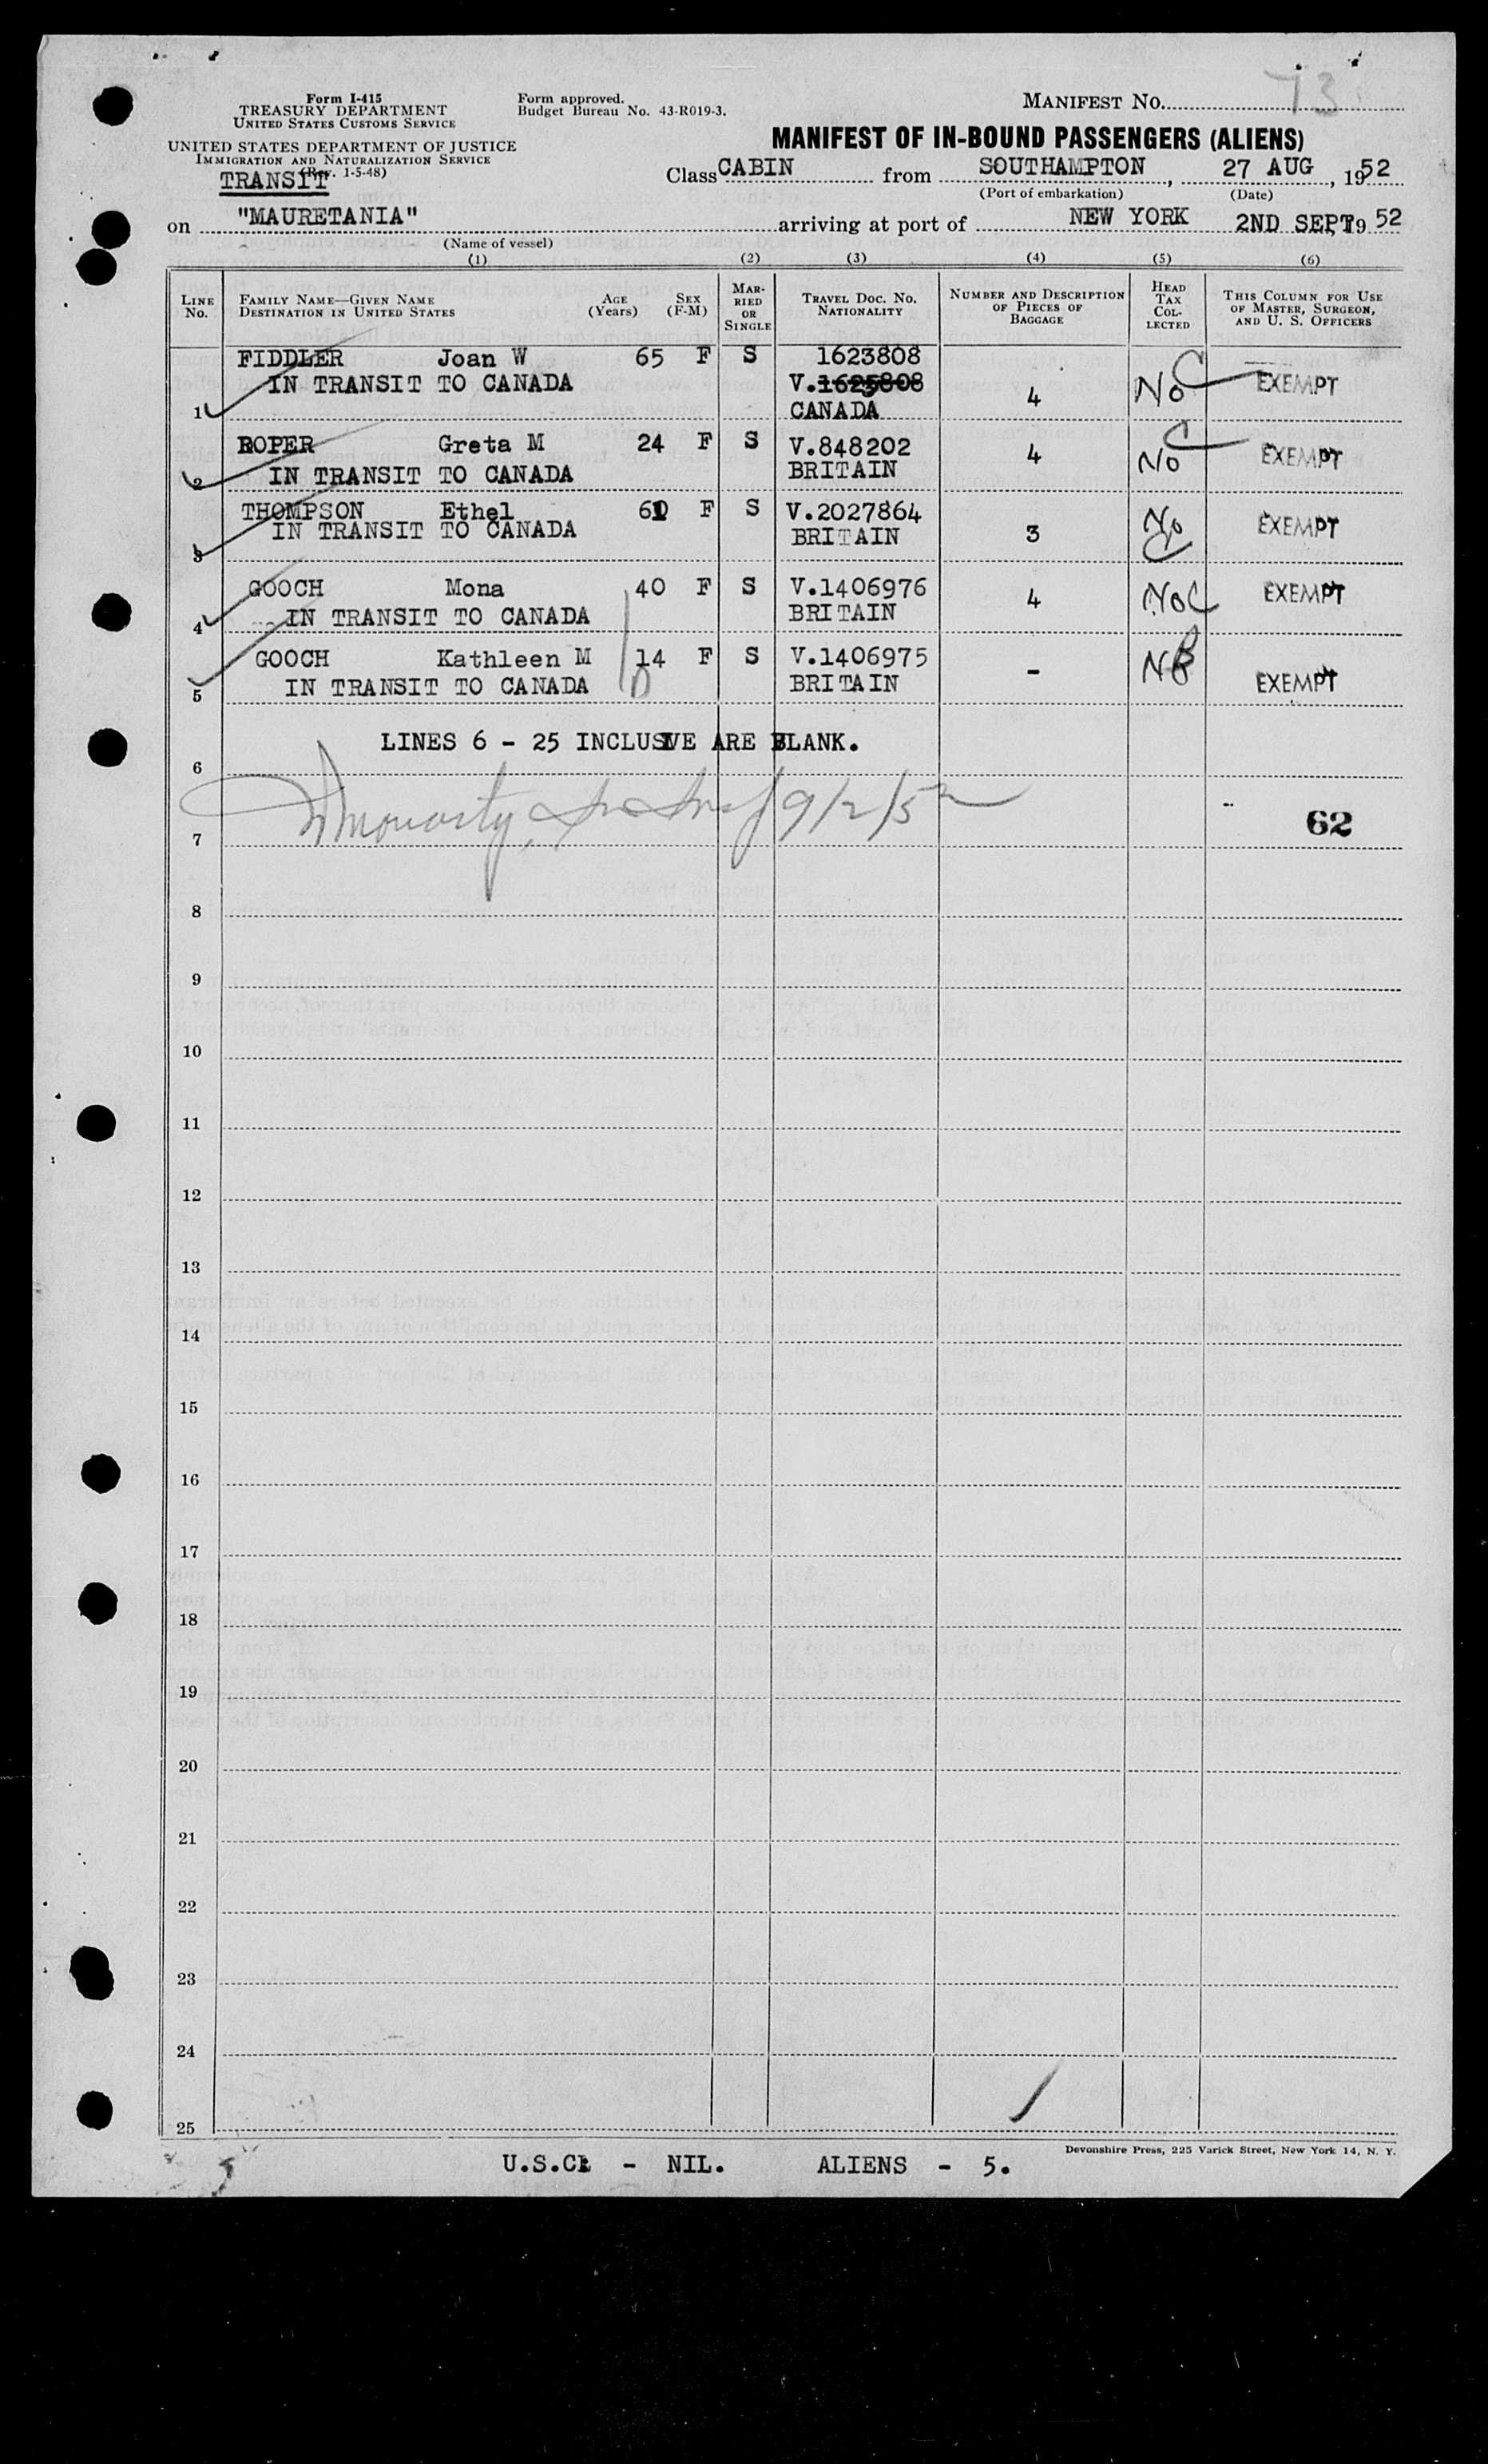 Form I-415
TREASURY DEPARTMENT
UNITED STATES CUSTOMS SERVICE
UNITED STATES DEPARTMENT OF JUSTICE
IMMIGRATION AND NATURALIZATION SERVICE
(Rev. 1-5-48)
TRANSIT
Form approved.
Budget Bureau No. 43-R019-3.
MANIFEST NO. 73
MANIFEST OF IN-BOUND PASSENGERS (ALIENS)
Class CABIN from SOUTHAMPTON, 27 AUG, 1952
(Port of embarkation) (Date)
on "MAURETANIA" arriving at port of NEW YORK 2ND SEPT, 1952
(Name of vessel)
(1) (2) (3) (4) (5) (6)
LINE NO. FAMILY NAME—GIVEN NAME DESTINATION IN UNITED STATES AGE (Years) SEX (F-M) MARRIED OR SINGLE TRAVEL DOC. NO. NATIONALITY NUMBER AND DESCRIPTION OF PIECES OF BAGGAGE HEAD TAX COLLECTED THIS COLUMN FOR USE OF MASTER, SURGEON, AND U. S. OFFICERS
FIDDLER Joan W 65 F S 1623808
IN TRANSIT TO CANADA V.1625808 No C EXEMPT
1 CANADA 4
ROPER Greta M 24 F S V.848202 4 No C EXEMPT
2 IN TRANSIT TO CANADA BRITAIN
THOMPSON Ethel 61 F S V.2027864
IN TRANSIT TO CANADA BRITAIN 3 No C EXEMPT
3
GOOCH Mona 40 F S V.1406976 4 No C EXEMPT
4 IN TRANSIT TO CANADA BRITAIN
GOOCH Kathleen M 14 F S V.1406975 - No
5 IN TRANSIT TO CANADA BRITAIN EXEMPT
LINES 6 - 25 INCLUSIVE ARE BLANK.
6
9/2/52
62
7
8
9
10
11
12
13
14
15
16
17
18
19
20
21
22
23
24
25
Devonshire Press, 225 Varick Street, New York 14, N. Y.
U.S.C. - NIL. ALIENS - 5.